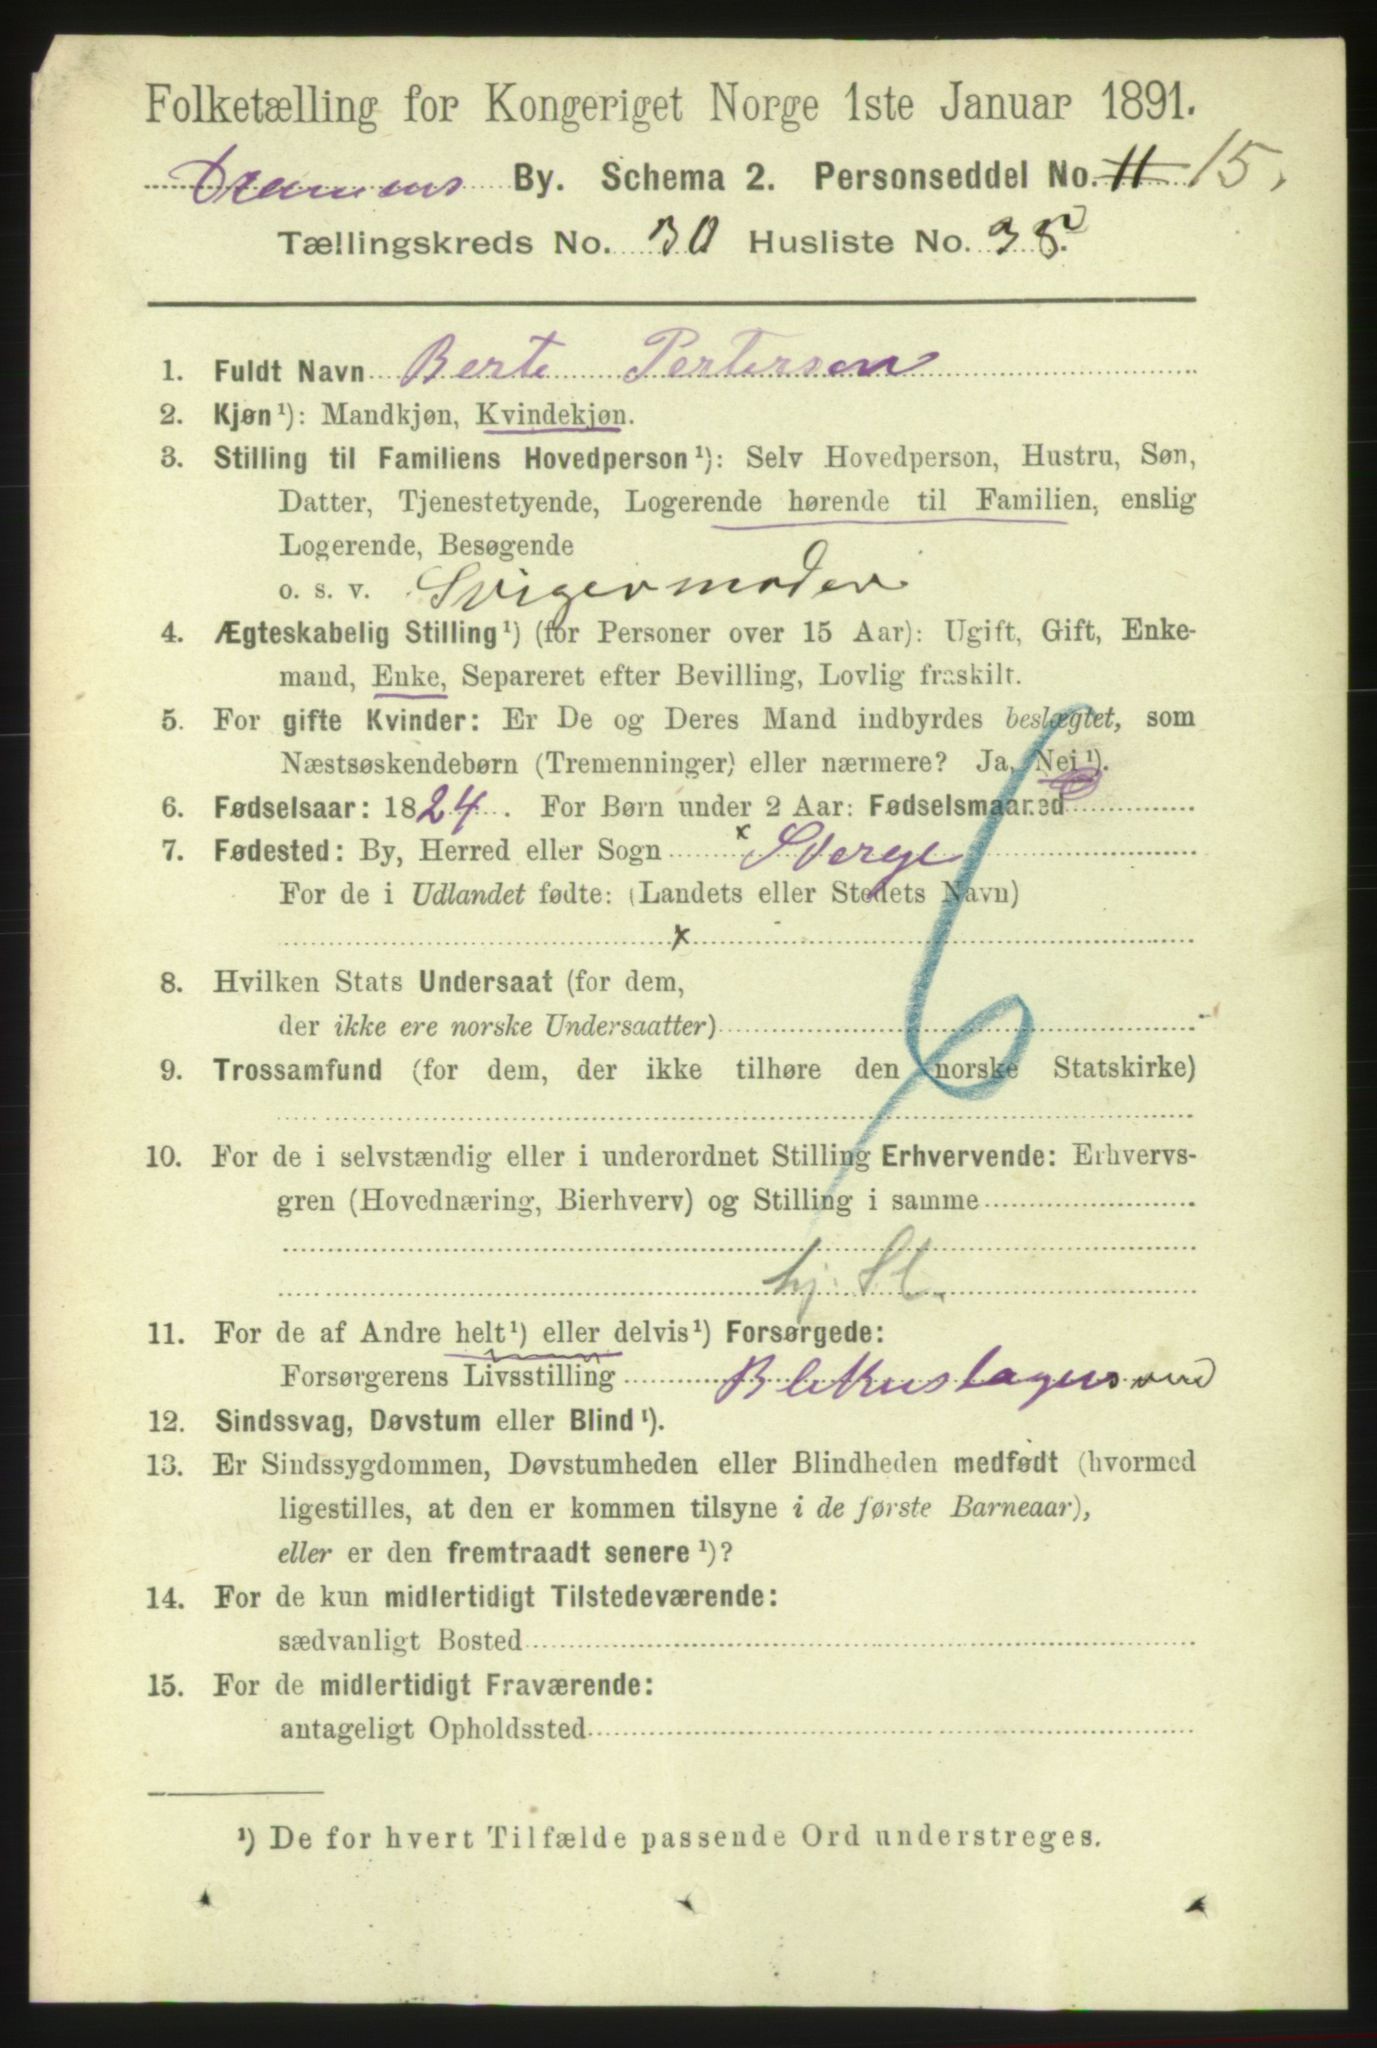 Folketælling for Kongeriget Norge 1ste Januar 1891.
Drammens By. Schema 2. Personseddel No. 11 15.
Tællingskreds No. 30 Husliste No. 38.
1. Fuldt Navn Berte Pertersen
2. Kjøn¹): Mandkjøn, Kvindekjøn.
3. Stilling til Familiens Hovedperson¹): Selv Hovedperson, Hustru, Søn,
Datter, Tjenestetyende, Logerende hørende til Familien, enslig
Logerende, Besøgende
o. s. v. Svigermoder
4. Ægteskabelig Stilling¹) (for Personer over 15 Aar): Ugift, Gift, Enke-
mand, Enke, Separeret efter Bevilling, Lovlig fraskilt.
5. For gifte Kvinder: Er De og Deres Mand indbyrdes beslægtet, som
Næstsøskendebørn (Tremenninger) eller nærmere? Ja, Nei¹).
6. Fødselsaar: 1824. For Børn under 2 Aar: Fødselsmaaned
7. Fødested: By, Herred eller Sogn x Sverge
For de i Udlandet fødte: (Landets eller Stedets Navn)
x
8. Hvilken Stats Undersaat (for dem,
der ikke ere norske Undersaatter)
9. Trossamfund (for dem, der ikke tilhøre den norske Statskirke)
10. For de i selvstændig eller i underordnet Stilling Erhvervende: Erhvervs-
gren (Hovednæring, Bierhverv) og Stilling i samme
hj. St.
11. For de af Andre helt¹) eller delvis¹) Forsørgede:
Forsørgerens Livsstilling
12. Sindssvag, Døvstum eller Blind¹).
13. Er Sindssygdommen, Døvstumheden eller Blindheden medfødt (hvormed
ligestilles, at den er kommen tilsyne i de første Barneaar),
eller er den fremtraadt senere¹)?
14. For de kun midlertidigt Tilstedeværende:
sædvanligt Bosted
15. For de midlertidigt Fraværende:
antageligt Opholdssted
¹) De for hvert Tilfælde passende Ord understreges.